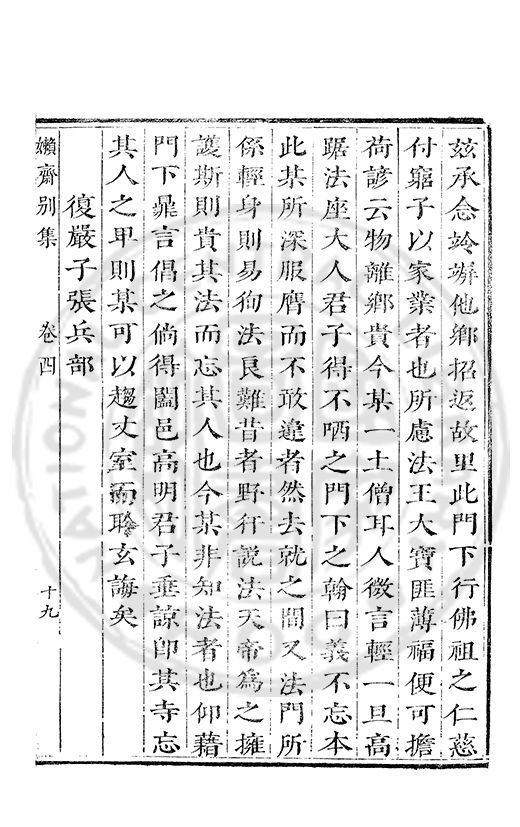 茲承念竛竮他鄉招返故里此門下行佛祖之仁慈
付窮子以家業者也所慮法王大寶匪薄福便可擔
荷諺云物離鄉貴今某一土僧耳人微言輕一旦高
踞法座大人君子得不哂之門下之翰曰義不忘本
此某所深服膺而不敢違者然去就之間又法門所
係輕身則易狥法良難昔者野犴說法天帝為之擁
護斯則貴其法而忘其人也今某非知法者也仰藉
門下鼎言倡之倘得闔邑高明君子垂諒即其寺忘
其人之卑則某可以趨丈室而聆玄誨矣
復嚴子張兵部
嬾齋別集 卷四 十九